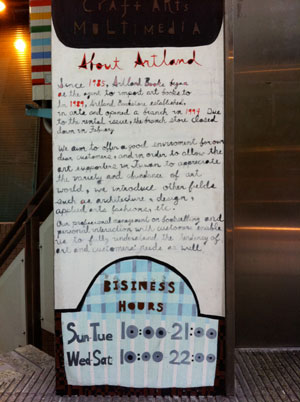 Craft Arts
MULTiMEDiA
About Artland
Since 1985, Artland Books began
as the agent to import art books to
In 1989, Artland Bookstore established,
in arts and opened a branch in 1994 Due
to the rental issue, the branch store closed
down in February
We aim to offer a good enviroment for our
dear customers, and in order to allow the
art supporters in Taiwan to appreciate
the variety and abundance of art
world, we introduce other fields
such as architecture, design,
applied arts, fashions, etc.
Our professional management on bookselling and
personal interaction with customers enable
us to fully understand the tendency of
art and customers' needs as well
BISINESS
HOURS
Sun-Tue 10:00 21:00
Wed-Sat 10:00 22:00